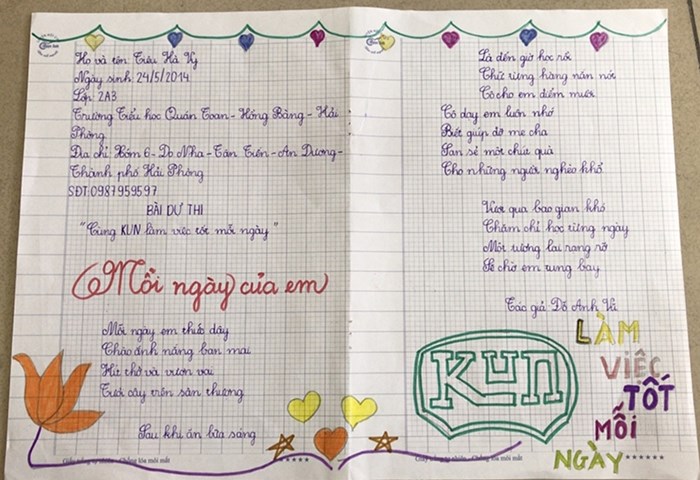 Họ và tên Triệu Hà Vy
Ngày sinh 24/5/2014
Lớp: 2A3
Trường Tiểu học Quán Toan - Hồng Bàng - Hải
Phòng
Địa chỉ Xóm 6 - Do Nha - Tân Tiến - An Dương -
Thành phố Hải Phòng
SĐT: 0987959597
BÀI DỰ THI
"Cùng KUN làm việc tốt mỗi ngày"
Mỗi ngày của em
Mỗi ngày em thức dậy
Chào ánh nắng ban mai
Hít thở và vươn vai
Tưới cây trên sân thượng
Sau khi ăn bữa sáng
Giấy trắng tự nhiên - Chống lóa mỏi mắt
Là đến giờ học rồi
Chữ từng hàng nắn nót
Cô cho em điểm mười
Cô dạy em luôn nhớ
Biết giúp đỡ mẹ cha
San sẻ một chút quà
Cho những người nghèo khổ
Vượt qua bao gian khó
Chăm chỉ học từng ngày
Một tương lai rạng rỡ
Sẽ chờ em tung bay
Tác giả: Đỗ Anh Vũ
KUN
LÀM
VIỆC
TỐT
MỖI
NGÀY
Giấy trắng tự nhiên - Chống lóa mỏi mắt